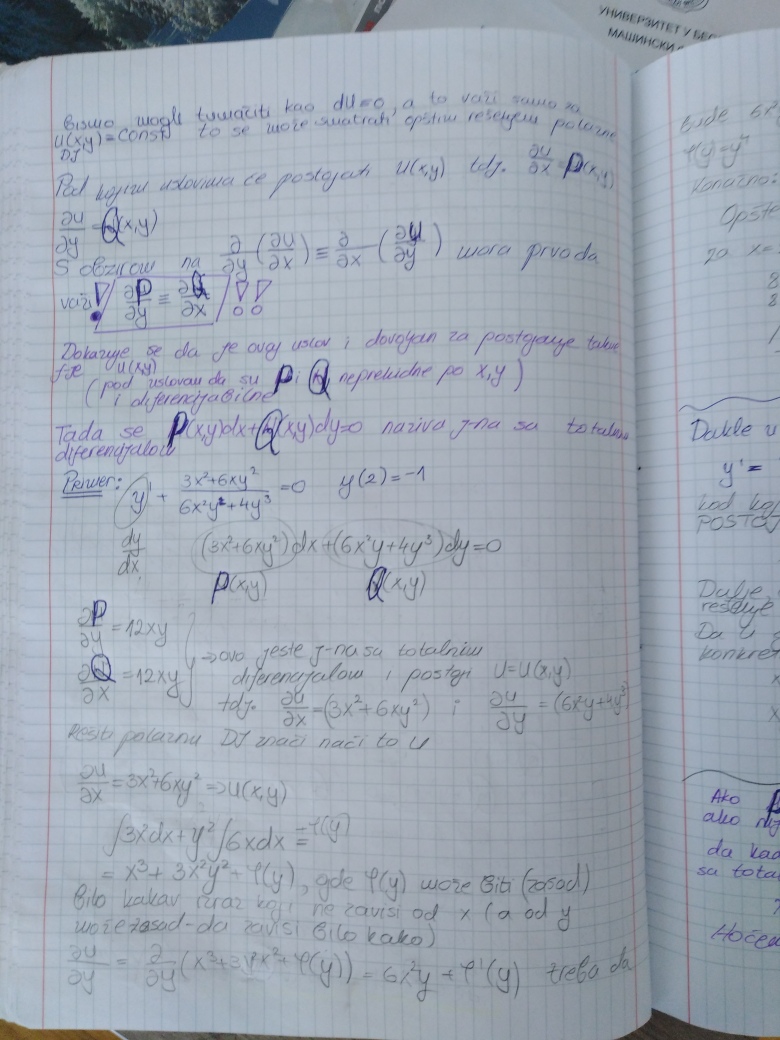 УНИВЕРЗИТЕТ У БЕО
МАШИНСКИ
Bismo mogli tumačiti kao du=0, a to važi samo za
u(x,y)=const to se može smatrati opštim rešenjem polazne
DJ
Pod kojim uslovima će postojati u(x,y) tdj. ∂u/∂x = P(x,y)
∂u/∂y = Q(x,y)
S obzirom na ∂/∂y (∂u/∂x) ≡ ∂/∂x (∂u/∂y) mora prvo da
važi ! ∂P/∂y ≡ ∂Q/∂x !!
Dokazuje se da je ovaj uslov i dovoljan za postojanje takve
f-je u(x,y)
(pod uslovom da su P i Q neprekidne po x,y)
i diferencijabilne
Tada se P(x,y)dx+Q(x,y)dy=0 naziva j-na sa totalnim
diferencijalom
Primer: y' + (3x²+6xy²)/(6x²y+4y³) =0 y(2)=-1
dy/dx (3x²+6xy²)dx+(6x²y+4y³)dy=0
P(x,y) Q(x,y)
∂P/∂y =12xy
∂Q/∂x =12xy ⇒ ovo jeste j-na sa totalnim
diferencijalom i postoji U=U(x,y)
tdj. ∂u/∂x =(3x²+6xy²) i ∂u/∂y =(6x²y+4y³)
Rešiti polaznu DJ znači naći to u
∂u/∂x =3x²+6xy² ⇒ u(x,y)
∫3x²dx+y²∫6xdx = φ(y)
= x³+3x²y²+φ(y), gde φ(y) može biti (zasad)
bilo kakav izraz koji ne zavisi od x (a od y
može zasad-da zavisi bilo kako)
∂u/∂y = ∂/∂y (x³+3y²x²+φ(y)) = 6x²y+φ'(y) treba da
bide
φ(y)=y⁴
Konačno:
Opšte
za x=
8
8
Dakle u
y' =
kod koj
POSTOJ
Dalje,
rešenje
Da u
konkre
x
x
Ako P
ako nij
da kad
sa total
Hoćem